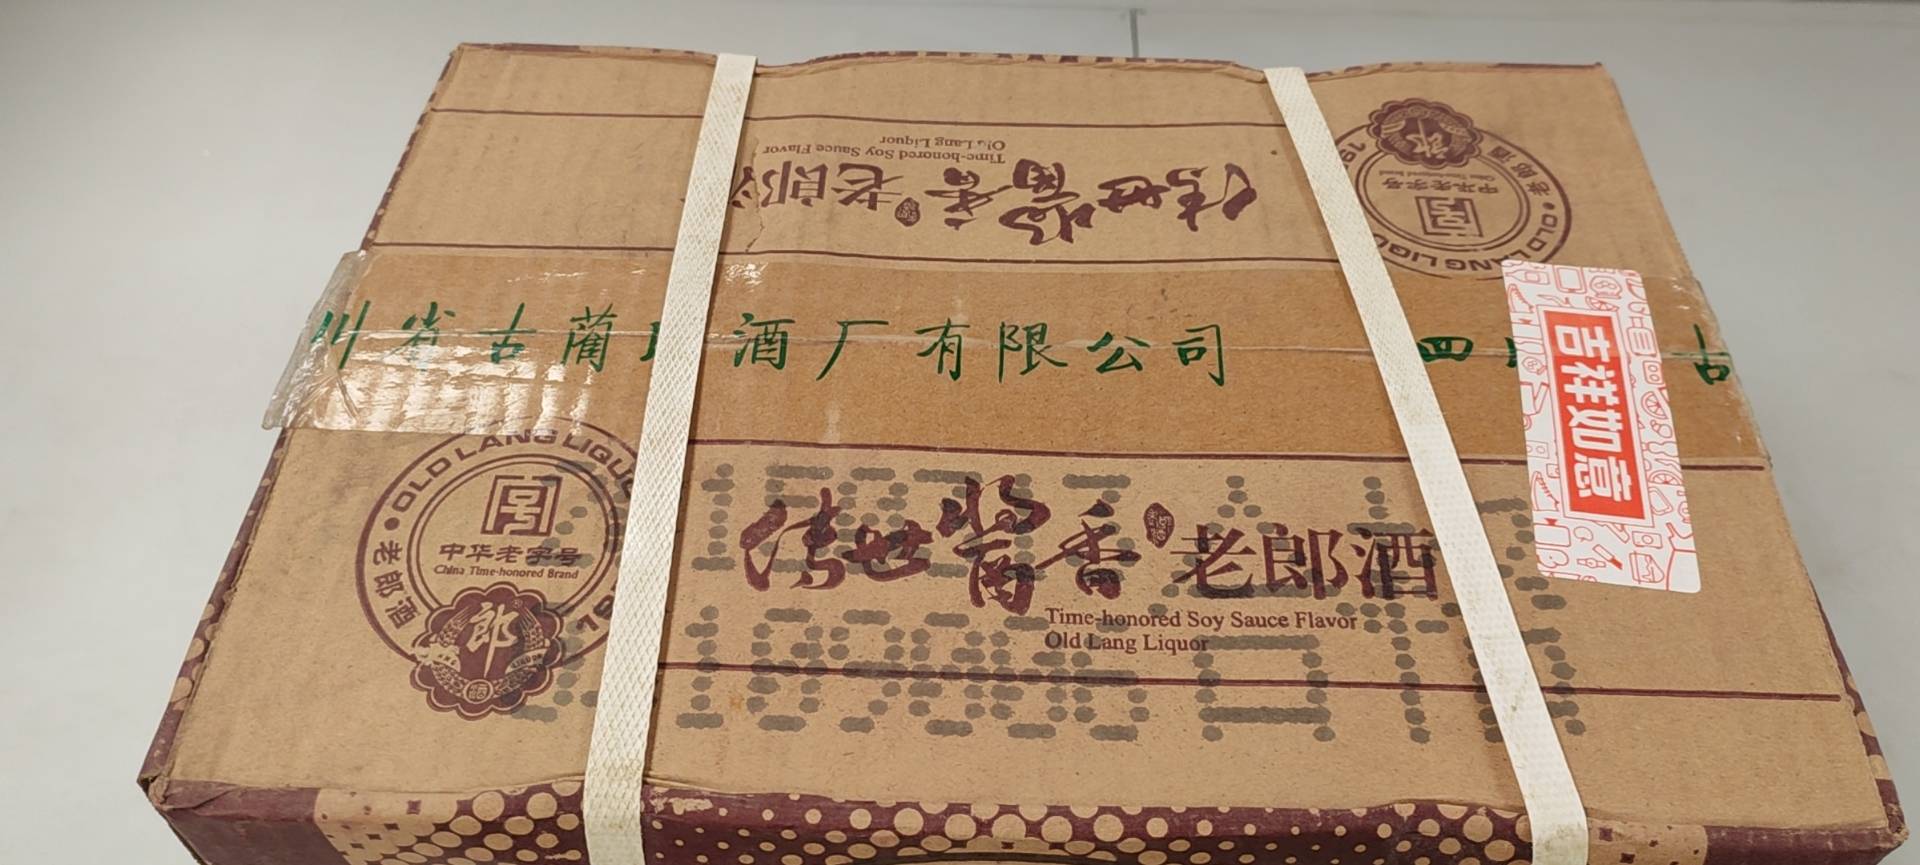 Old Lang Liquor
Time-honored Soy Sauce Flavor
传世酱香老郎
老郎酒
OLD LANG LIQU
号
中华老字号
China Time-honored Brand
郎
川省古蔺 酒厂有限公司
四
古
吉祥如意
OLD LANG LIQUO
老郎酒
号
中华老字号
China Time-honored Brand
郎
传世酱香老郎酒
Time-honored Soy Sauce Flavor
Old Lang Liquor